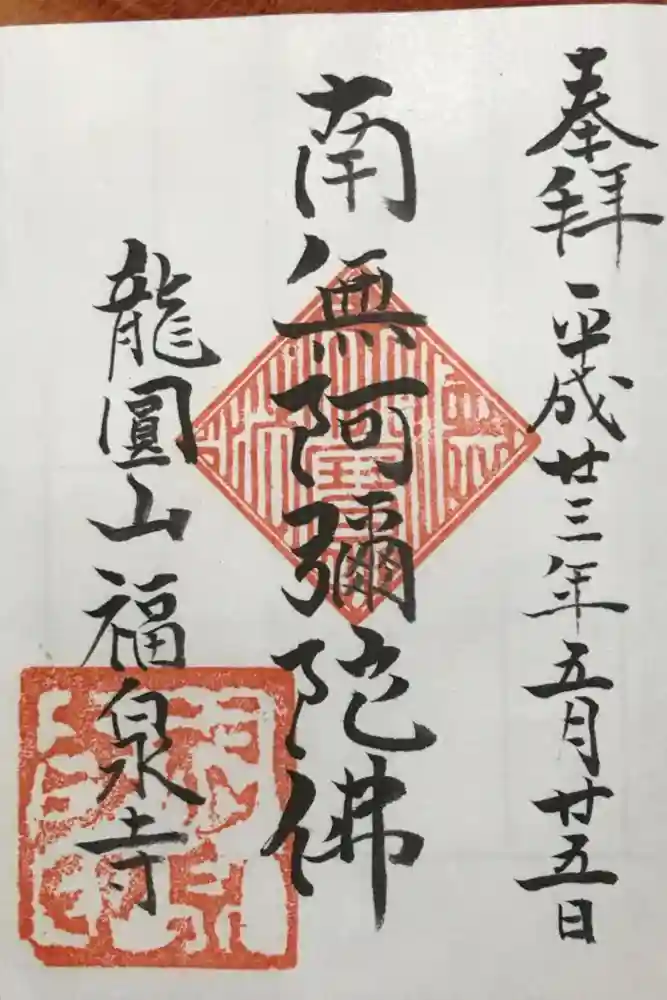 奉拜 平成廿三年五月廿五日
南無阿彌陀佛
龍圓山福泉寺